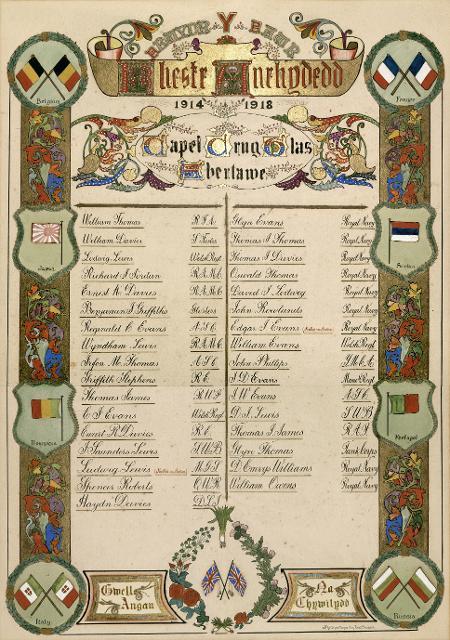 Y
Rhestr Anrhydedd
1914 1918
Capel Crug Glas
Abertawe
Belgium
France
Japan
Serbia
Portugal
Italy
Russia
William Thomas R.F.A.
William Davies
Ludwig Lewis Welsh Regt
Richard J Jordan R.A.M.C
Ernest K. Davies R.A.M.C
Benjamin J Griffiths
Reginald C Evans A.S.C
Wyndham Lewis R.A.M.C
Trefor M. Thomas A.S.C
Griffith Stephens R.E.
Thomas James R.W.F
C J Evans Welsh Regt
Ewart R Davies R.E.
J Saunders Lewis S.W.B
Ludwig Lewis Killed in Action M.G.S
Spencer Roberts
Haydn Davies D.L.I
Glyn Evans Royal Navy
Thomas J Thomas Royal Navy
Thomas J Davies Royal Navy
Oswald Thomas Royal Navy
David J Lodwig Royal Navy
John Rowlands Royal Navy
Edgar J Evans Killed in Action Royal Navy
William Evans Welsh Regt
John Phillips Y.M.C.A
J D Evans
J W Evans A.S.C
D J Lewis S.W.B
Thomas J James R.A.F
Glyn Thomas Tank Corps
D Emrys Williams Royal Navy
William Owens Royal Navy
Gwell Angau
Na Chywilydd